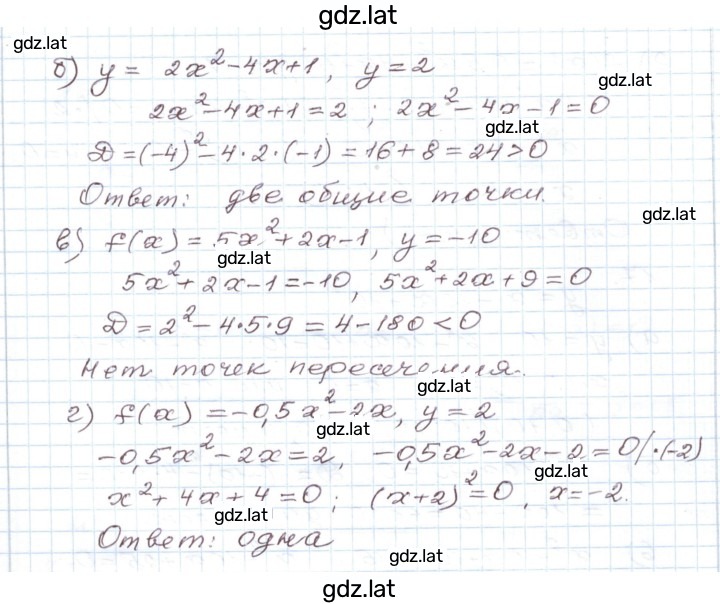 gdz.lat
gdz.lat
б) y = 2x²-4x+1, y=2
gdz.lat
2x²-4x+1=2 ; 2x²-4x-1=0
gdz.lat
Д=(-4)²-4·2·(-1)=16+8=24>0
Ответ: две общие точки.
gdz.lat
в) f(x)=5x²+2x-1, y=-10
gdz.lat
5x²+2x-1=-10, 5x²+2x+9=0
Д=2²-4·5·9=4-180<0
Нет точек пересечения.
gdz.lat
г) f(x)=-0,5x²-2x, y=2
gdz.lat
-0,5x²-2x=2, -0,5x²-2x-2=0/·(-2)
gdz.lat
x²+4x+4=0; (x+2)²=0, x=-2.
gdz.lat
Ответ: одна
gdz.lat
gdz.lat